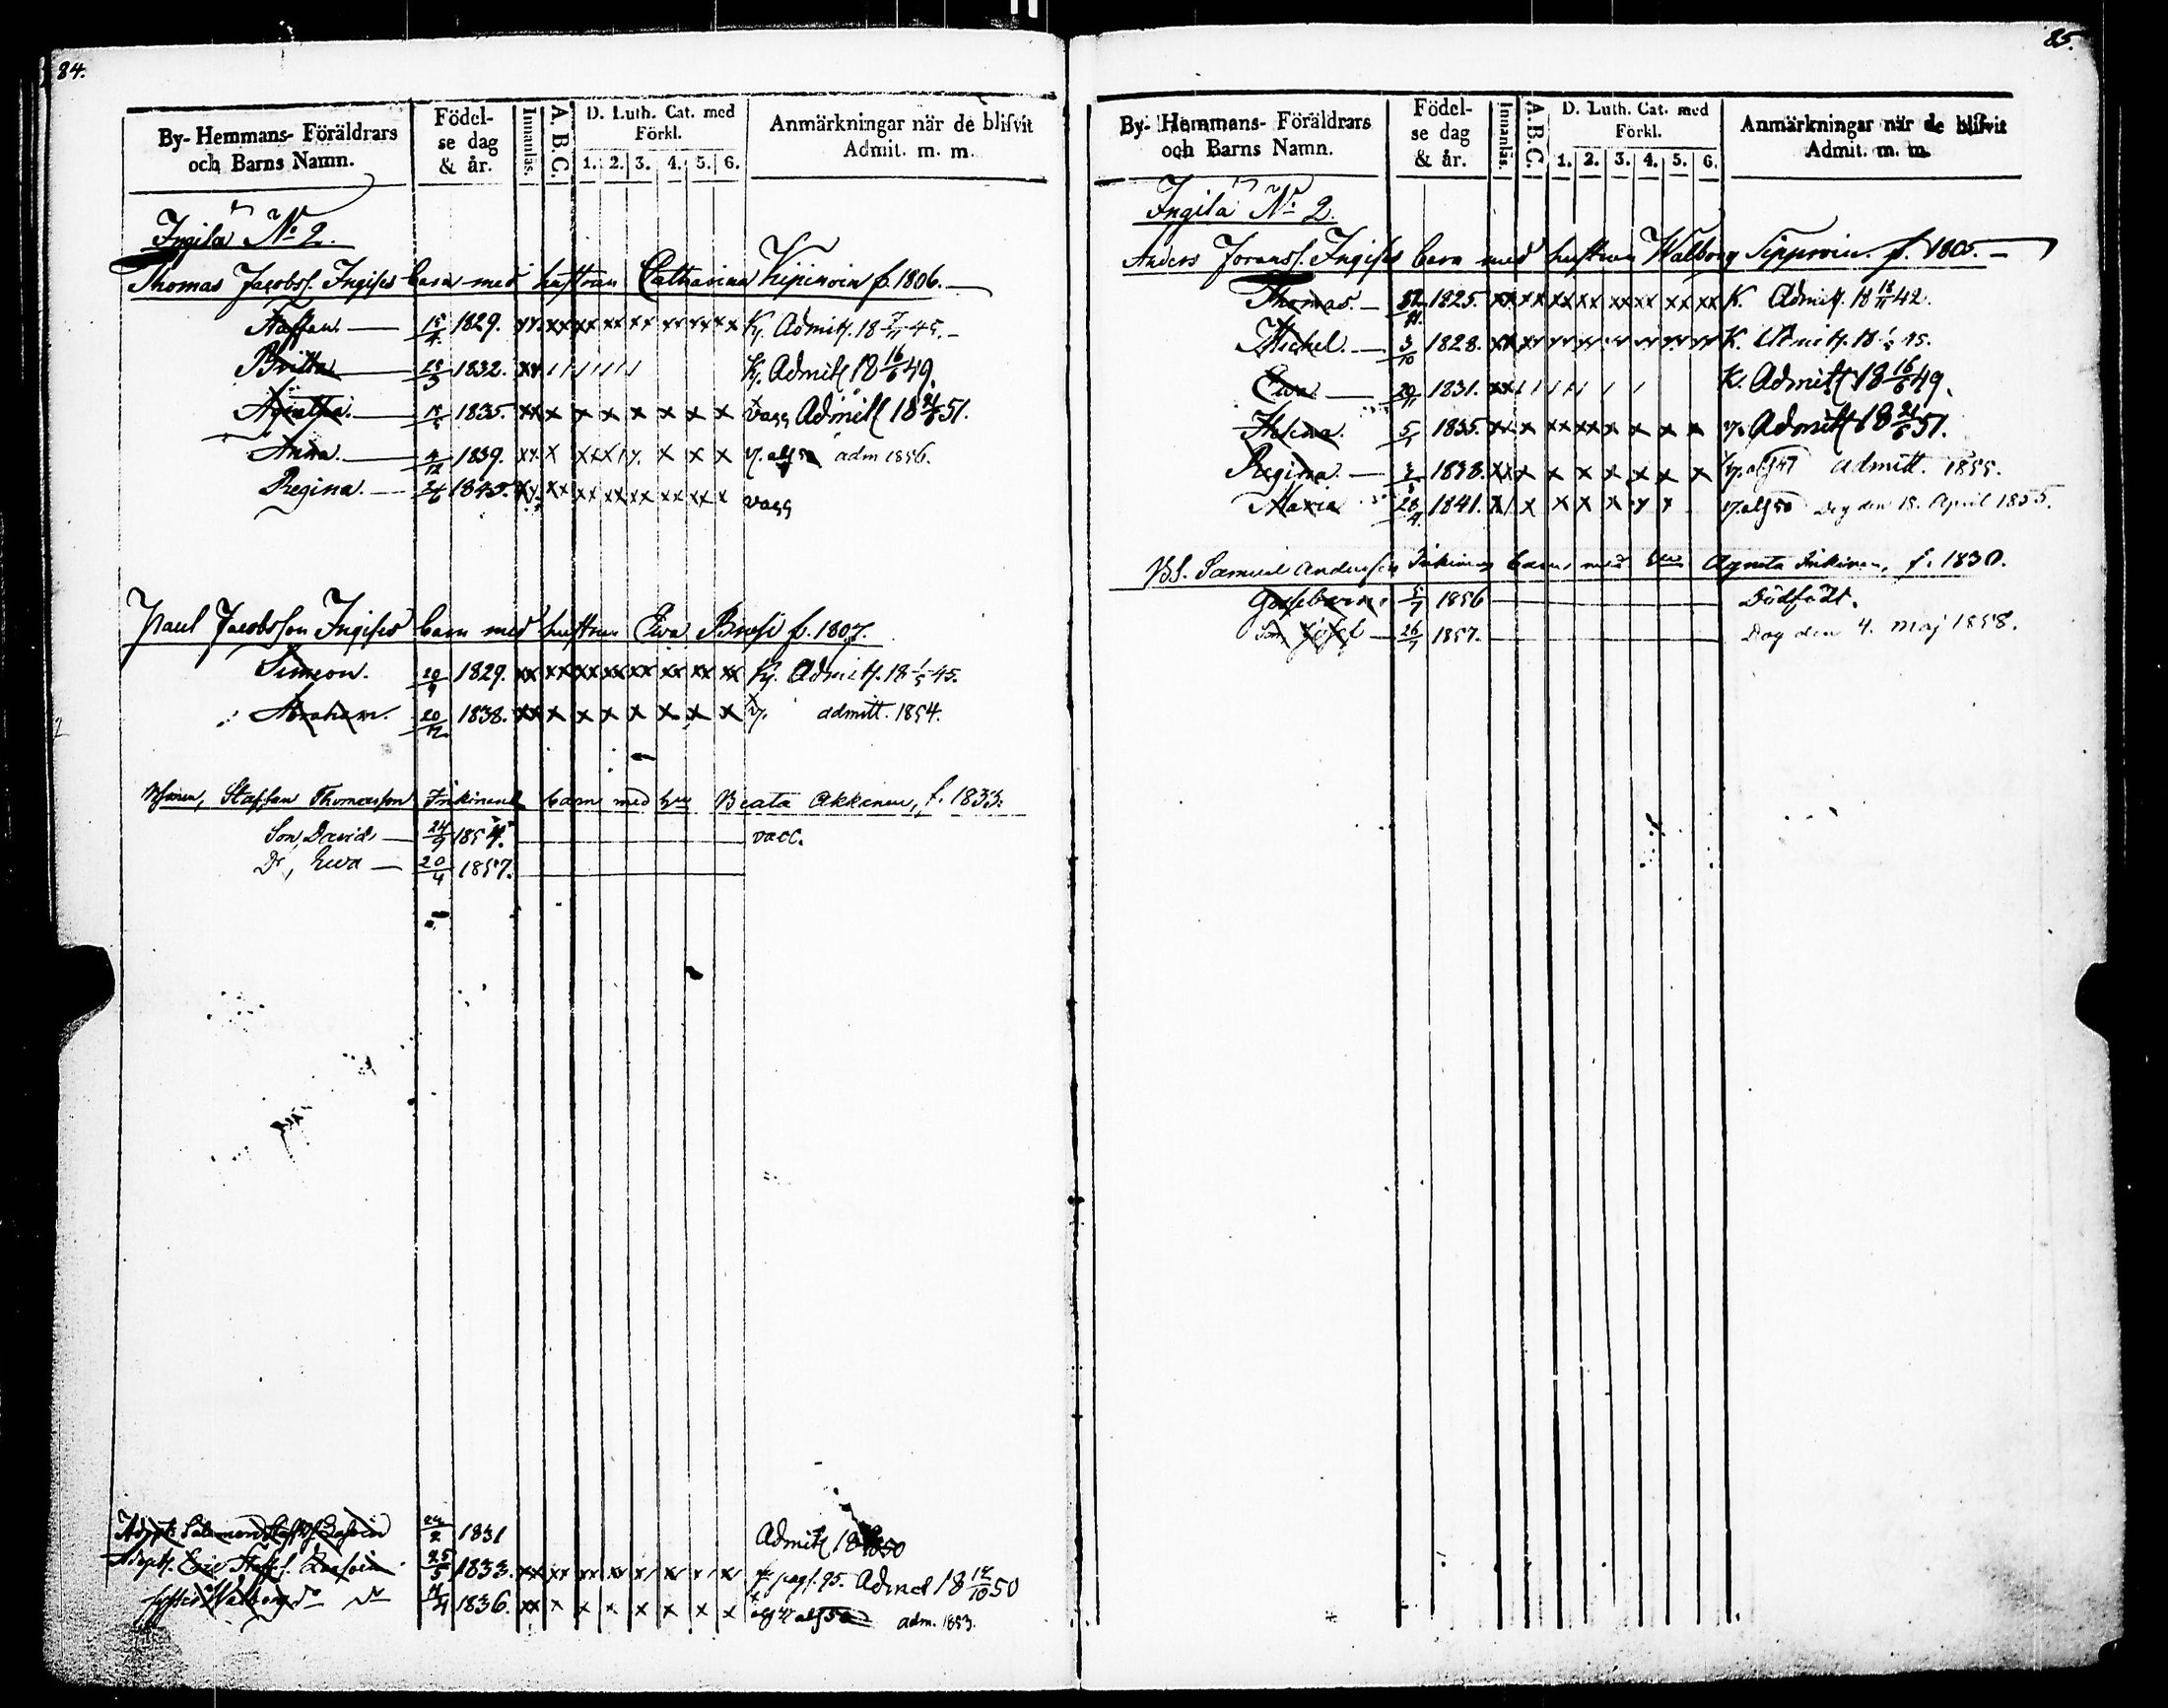 84.
By- Hemmans- Föräldrars och Barns Namn.
Födel-se dag & år.
Innanläs.
A. B. C.
D. Luth. Cat. med Förkl.
1. 2. 3. 4. 5. 6.
Anmärkningar när de blifvit Admit. m. m.
Ingila No 2.
Thomas Jacobss. Ingises barn med hustrun Catharina Kipinoin f. 1806.
Staffan. 15/4 1829. xx xx xx xx xx xx xx xx Admitt. 18 7/11 45.
Britta 1832. xx / / / / / / Admitt 18 16/6 49.
Agnetha. 1835. xx x x x x x x x vacc Admitt 18 21/6 51.
Anna. 4/12 1839. adm 1856.
Regina. 24/6 1845. vacc
Paul Jacobsson Ingises barn med hustrun Ewa Brusi f. 1807.
Simeon. 20/9 1829. xx xx xx xx xx xx xx xx Admitt. 18 1/5 45.
Abraham. 20/12 1838. xx x x x x x x x admitt. 1854.
Staffan Thomasson Inkinens barn med hu Beata Akkanen, f. 1833.
Son, David 24/9 1854. vacc.
Dr, Ewa 20/4 1857.
Adopt. Salomon 24/2 1831 Admitt 1850
Adopt. Eric Staffs. 25/5 1833. pag. 95. Admit 18 12/10 50
Walborg do do 1836. xx x x x x x x x adm. 1853.
85.
By- Hemmans- Föräldrars och Barns Namn.
Födel-se dag & år.
Innanläs.
A. B. C.
D. Luth. Cat. med Förkl.
1. 2. 3. 4. 5. 6.
Anmärkningar när de blifvit Admit. m. m.
Ingila No 2.
Anders Joranss. Ingises barn med hustrun Walborg Sipproin. f. 1805.
Thomas. 1825. xx xx xx xx xx xx xx xx K. Admitt. 18 18/11 42.
Michel. 3/10 1828. K. Admitt. 18 1/5 45.
Ewa 20/11 1831. xx / / / / / / K. Admitt 18 16/6 49.
Helena. 5/1 1835. xx x xx xx x x x x Admitt 18 21/6 51.
Regina. 1838. xx x x x x x x x admitt. 1855.
Maria 28/4 1841. Dog den 18. April 1855.
BS. Samuel Andersson Inkinens barn med hu Agneta Inkinen, f. 1830.
Gossebarn 5/7 1856 Dödfödt.
Son, Josef 26/7 1857. Dog den 4. Maj 1858.